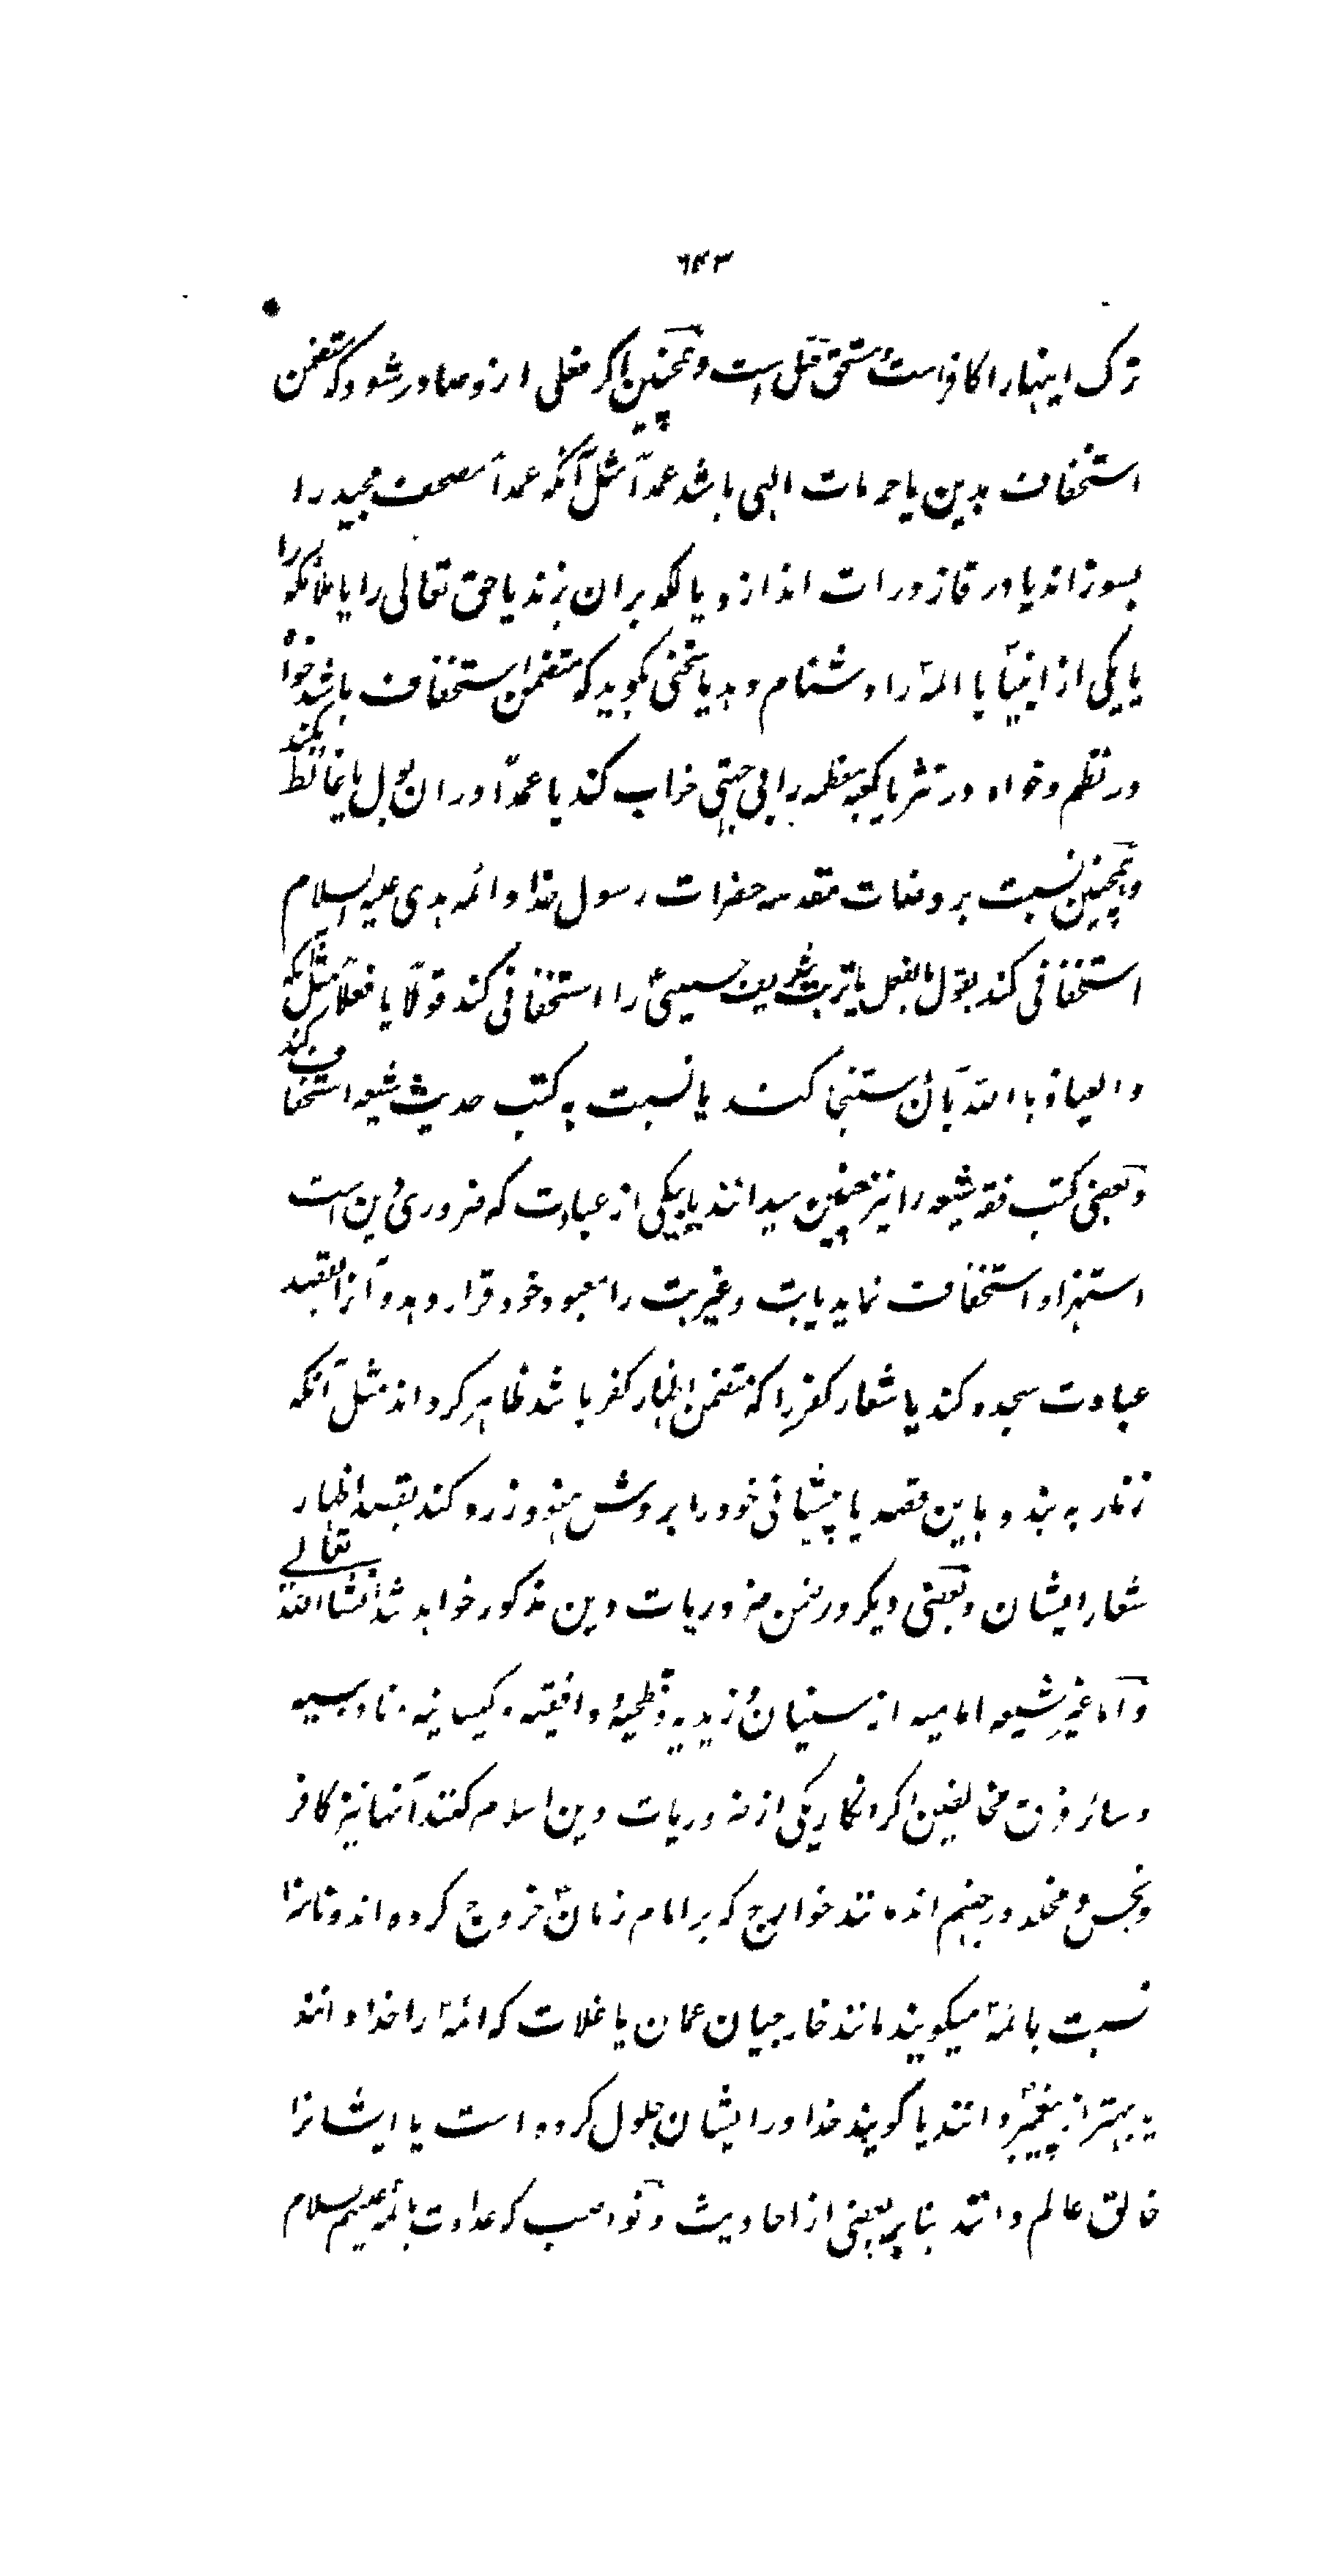 ۶۴۳
ترک اینها را کافر است و مستحق قتل است و همچنین اگر فعلی از و صادر شود که متضمن
استخفاف بدین یا حرمات الهی باشد عمداً مثل آنکه عمداً مصحف مجید را
بسوزاند یا در قاذورات اندازد یا لکد بران بزند یا حق تعالی را یا ملائکه را
یا یکی از انبیآ یا ائمه را دشنام دهد یا سخنی بگوید که متضمن استخفاف باشد خواه
در نظم و خواه در نثر یا کعبه معظمه را بی جهتی خراب کند یا عمداً دران بول یا غائط بکند
و همچنین نسبت بروضات مقدسه حضرات رسول خدا و ائمه هدی علیه السلام
استخفافی کند بقول یا بفعل یا تربت شریف حسینی را استخفافی کند قولاً یا فعلاً مثل آنکه
والعیاذ باالله بآن استنجا کند یا نسبت به کتب حدیث شیعه استخفاف کند
و بعضی کتب فقه شیعه را نیز چنین میدانند یا بیکی از عبادت که ضروری دین است
استهزا و استخفاف نماید یا بت و غیر بت را معبود خود قرار دهد و آنرا بقصد
عبادت سجده کند یا شعار کفر را که متضمن اظهار کفر باشد ظاهر گرداند مثل آنکه
زنار به بندد باین قصد یا پیشانی خود را بروش هنود زرد کند بقصد اظهار
شعار ایشان و بعضی دیگر در ضمن ضروریات دین مذکور خواهد شد انشاالله تعالی
و اما غیر شیعه امامیه از سنیان و زیدیه و فطحیه و واقفیه و کیسانیه و ناوسیه
و سائر فرق مخالفین اگر انکار یکی از ضروریات دین اسلام کنند آنها نیز کافر
و نجس و مخلد در جهنم اند مانند خوارج که بر امام زمان خروج کرده اند و ناسزا
نسبت بائمه میگویند مانند خارجیان عمان یا غلات که ائمه را خدا دانند
یا بهتر از پیغمبر دانند یا گویند خدا در ایشان حلول کرده است یا ایشانرا
خالق عالم دانند بنابر بعضی از احادیث و نواصب که عداوت بائمه علیهم السلام